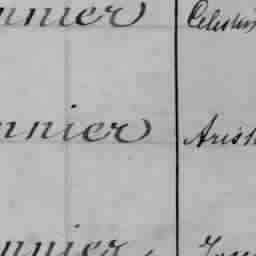 nnier Celestin
nnier Arist
nnier